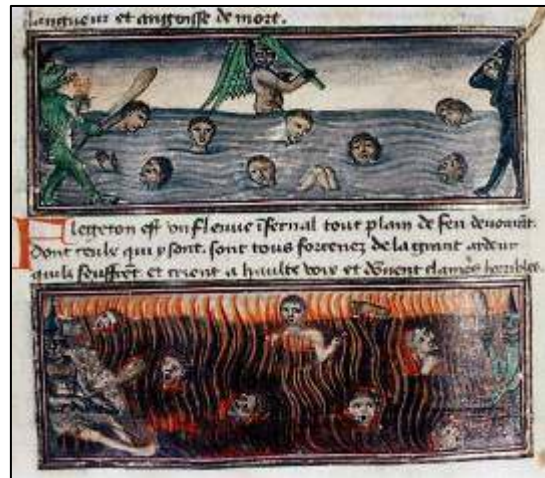 langueur et angoisse de mort.
Flegeton est vn fleuue ifernal tout plain de feu deuorant.
dont ceulx qui y sont. sont tous forcenez de la grant ardeur
quilz seuffrēt et crient a haulte voix et dōnent clameꝰs horribles.